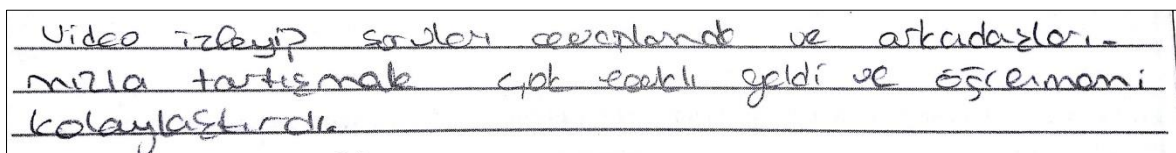 Video izleyip soruları cevaplamak ve arkadaşları-
mızla tartışmak çok zevkli geldi ve öğrenmemi
kolaylaştırdı.